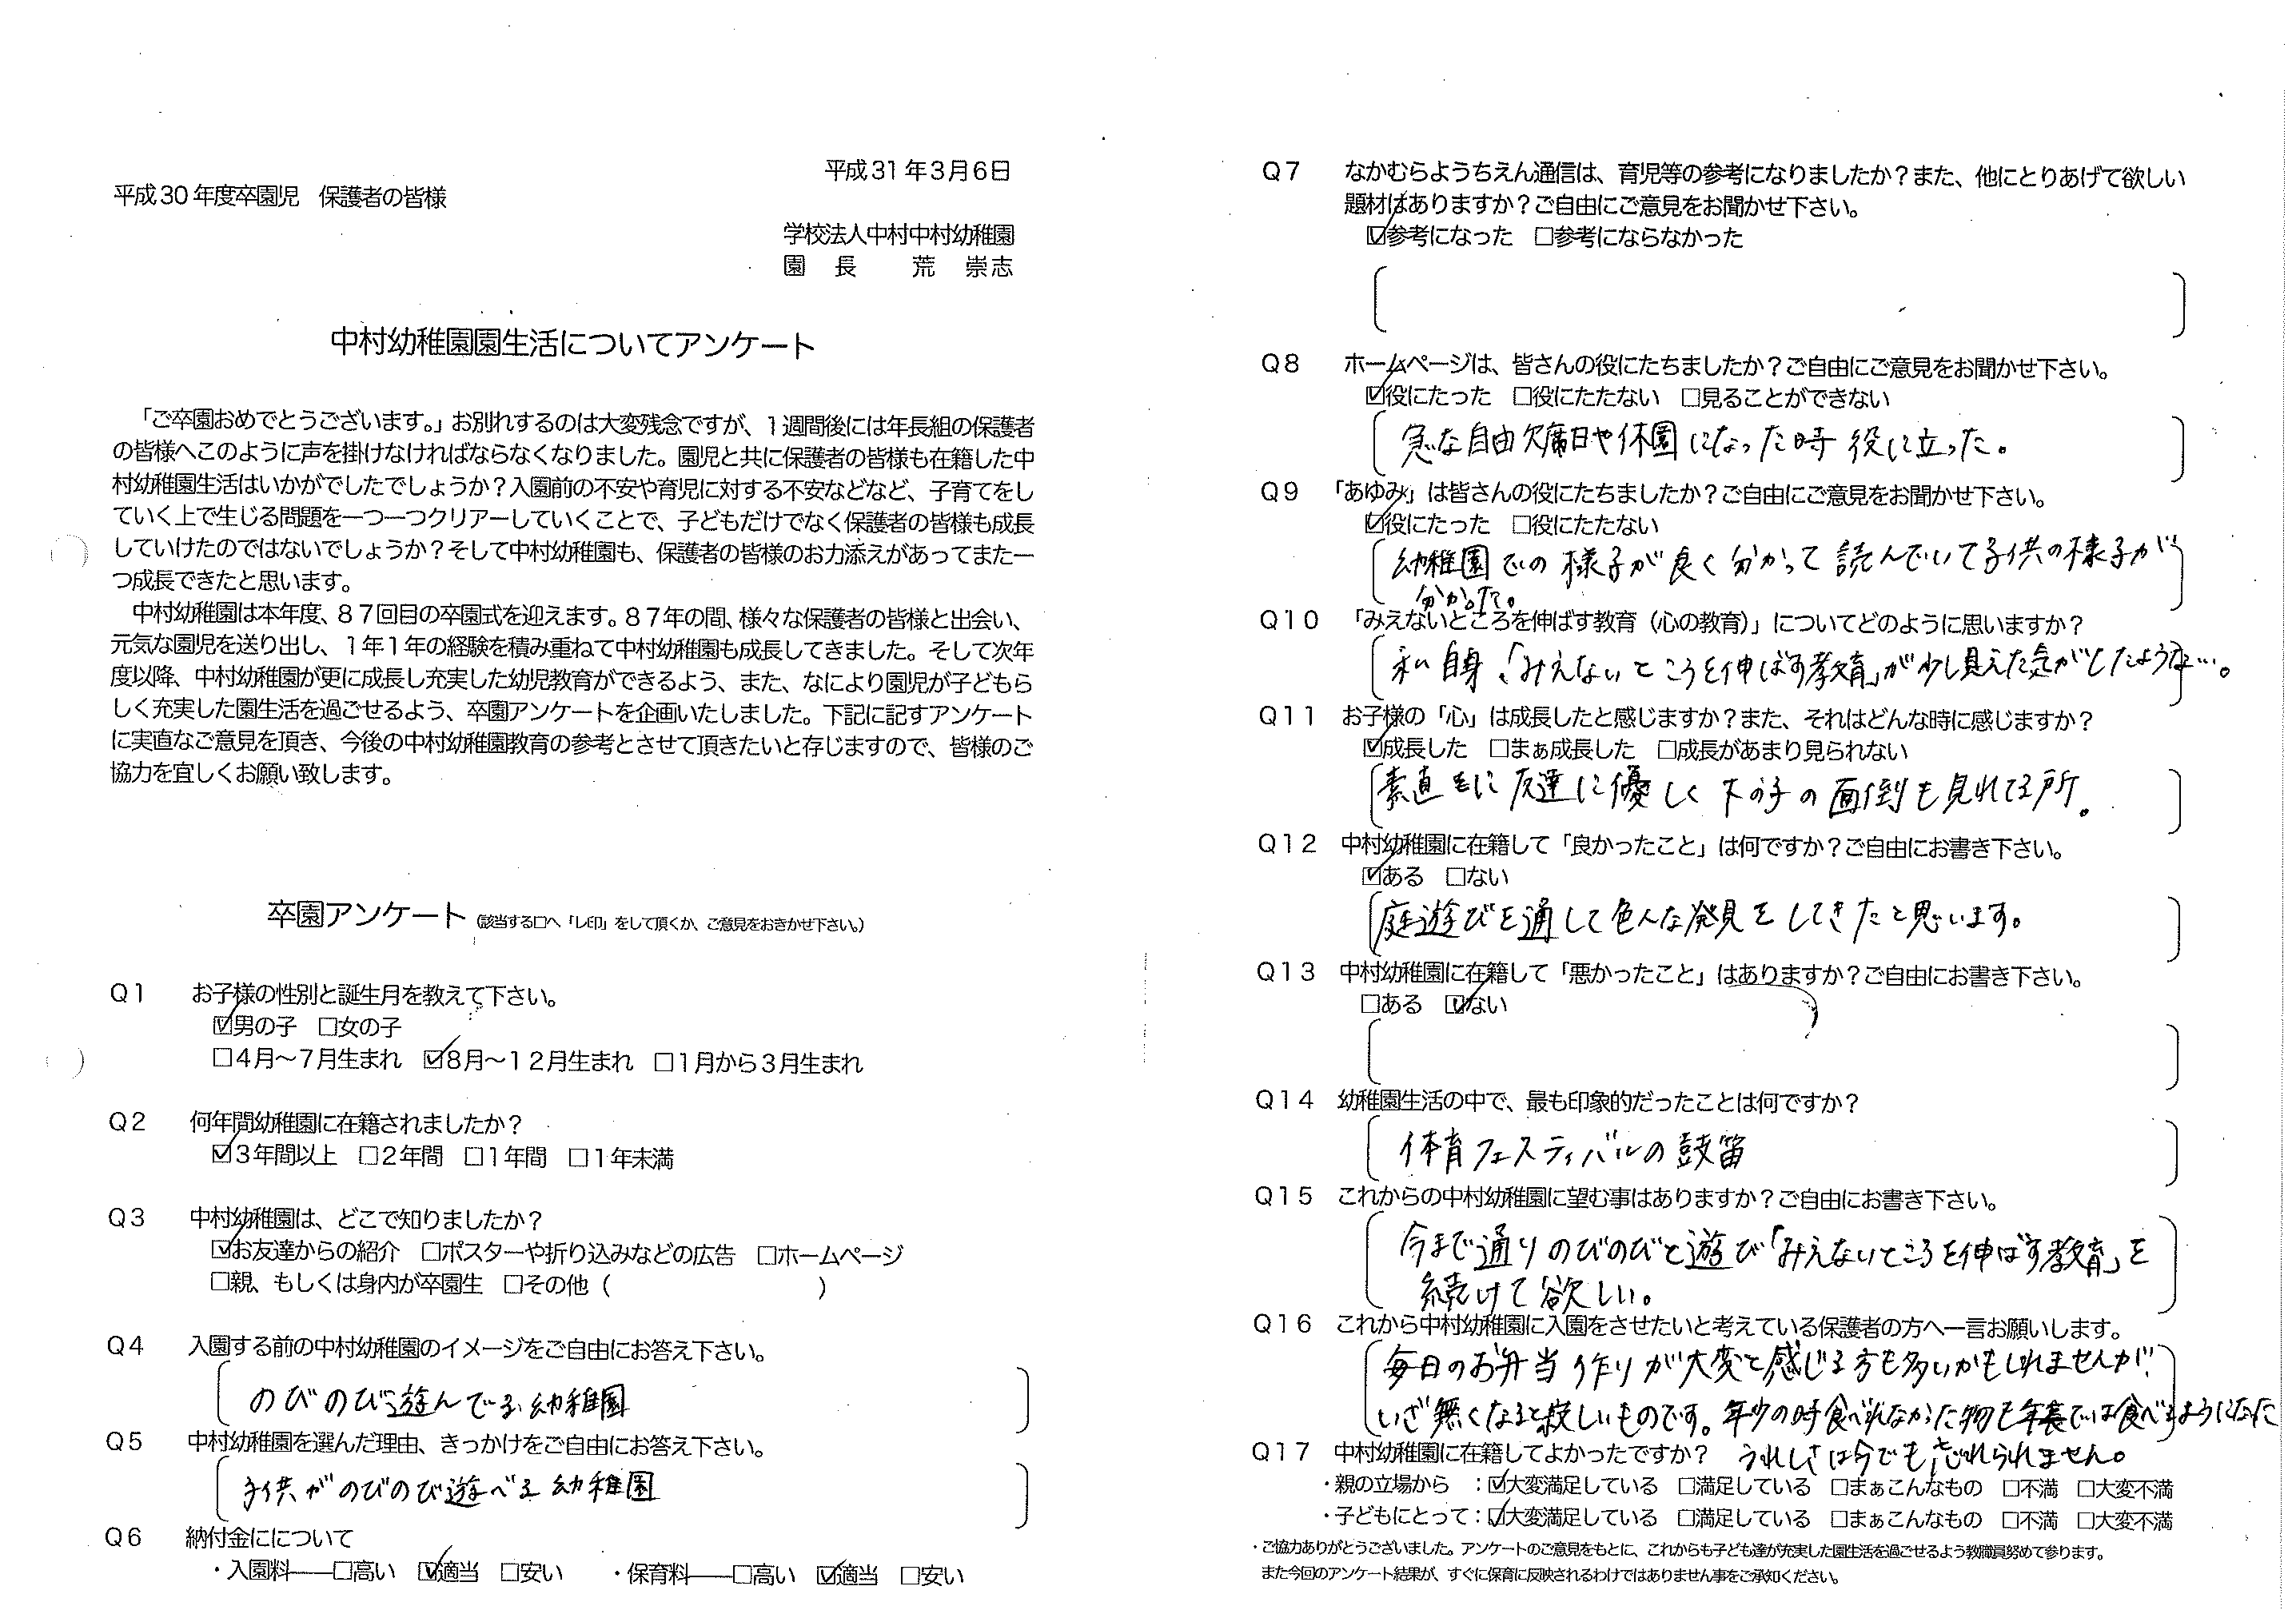 平成31年3月6日
平成30年度卒園児　保護者の皆様
学校法人中村中村幼稚園
園　長　　荒　崇志
中村幼稚園園生活についてアンケート
「ご卒園おめでとうございます。」お別れするのは大変残念ですが、1週間後には年長組の保護者
の皆様へこのように声を掛けなければならなくなりました。園児と共に保護者の皆様も在籍した中
村幼稚園生活はいかがでしたでしょうか？入園前の不安や育児に対する不安などなど、子育てをし
ていく上で生じる問題を一つ一つクリアーしていくことで、子どもだけでなく保護者の皆様も成長
していけたのではないでしょうか？そして中村幼稚園も、保護者の皆様のお力添えがあってまた一
つ成長できたと思います。
中村幼稚園は本年度、８７回目の卒園式を迎えます。８７年の間、様々な保護者の皆様と出会い、
元気な園児を送り出し、１年１年の経験を積み重ねて中村幼稚園も成長してきました。そして次年
度以降、中村幼稚園が更に成長し充実した幼児教育ができるよう、また、なにより園児が子どもら
しく充実した園生活を過ごせるよう、卒園アンケートを企画いたしました。下記に記すアンケート
に実直なご意見を頂き、今後の中村幼稚園教育の参考とさせて頂きたいと存じますので、皆様のご
協力を宜しくお願い致します。
卒園アンケート（該当する□へ「レ印」をして頂くか、ご意見をおきかせ下さい。）
Q１　お子様の性別と誕生月を教えて下さい。
☑男の子　□女の子
□４月～７月生まれ　☑８月～１２月生まれ　□１月から３月生まれ
Q２　何年間幼稚園に在籍されましたか？
☑３年間以上　□２年間　□１年間　□１年未満
Q３　中村幼稚園は、どこで知りましたか？
☑お友達からの紹介　□ポスターや折り込みなどの広告　□ホームページ
□親、もしくは身内が卒園生　□その他（　　　　　　　　　）
Q４　入園する前の中村幼稚園のイメージをご自由にお答え下さい。
のびのび遊んでる幼稚園
Q５　中村幼稚園を選んだ理由、きっかけをご自由にお答え下さい。
子供がのびのび遊べる幼稚園
Q６　納付金にについて
・入園料――□高い　☑適当　□安い　　・保育料――□高い　☑適当　□安い
Q７　なかむらようちえん通信は、育児等の参考になりましたか？また、他にとりあげて欲しい
題材はありますか？ご自由にご意見をお聞かせ下さい。
☑参考になった　□参考にならなかった
Q８　ホームページは、皆さんの役にたちましたか？ご自由にご意見をお聞かせ下さい。
☑役にたった　□役にたたない　□見ることができない
急な自由欠席日や休園になった時役に立った。
Q９　「あゆみ」は皆さんの役にたちましたか？ご自由にご意見をお聞かせ下さい。
☑役にたった　□役にたたない
幼稚園での様子が良く分かって読んでいて子供の様子が
分かった。
Q１０　「みえないところを伸ばす教育（心の教育）」についてどのように思いますか？
私自身、「みえないところを伸ばす教育」が少し見えた気がしたような…。
Q１１　お子様の「心」は成長したと感じますか？また、それはどんな時に感じますか？
☑成長した　□まぁ成長した　□成長があまり見られない
素直に友達に優しく下の子の面倒も見れてる所。
Q１２　中村幼稚園に在籍して「良かったこと」は何ですか？ご自由にお書き下さい。
☑ある　□ない
庭遊びを通して色んな発見をしてきたと思います。
Q１３　中村幼稚園に在籍して「悪かったこと」はありますか？ご自由にお書き下さい。
□ある　☑ない
Q１４　幼稚園生活の中で、最も印象的だったことは何ですか？
体育フェスティバルの鼓笛
Q１５　これからの中村幼稚園に望む事はありますか？ご自由にお書き下さい。
今まで通りのびのびと遊び「みえないところを伸ばす教育」を
続けて欲しい。
Q１６　これから中村幼稚園に入園をさせたいと考えている保護者の方へ一言お願いします。
毎日のお弁当作りが大変と感じる方も多いかもしれませんが、
いざ無くなると寂しいものです。年少の時食べれなかった物も年長では食べれるようになった
うれしさは今でも忘れられません。
Q１７　中村幼稚園に在籍してよかったですか？
・親の立場から　：☑大変満足している　□満足している　□まぁこんなもの　□不満　□大変不満
・子どもにとって：☑大変満足している　□満足している　□まぁこんなもの　□不満　□大変不満
・ご協力ありがとうございました。アンケートのご意見をもとに、これからも子ども達が充実した園生活を過ごせるよう教職員努めて参ります。
また今回のアンケート結果が、すぐに保育に反映されるわけではありません事をご承知ください。